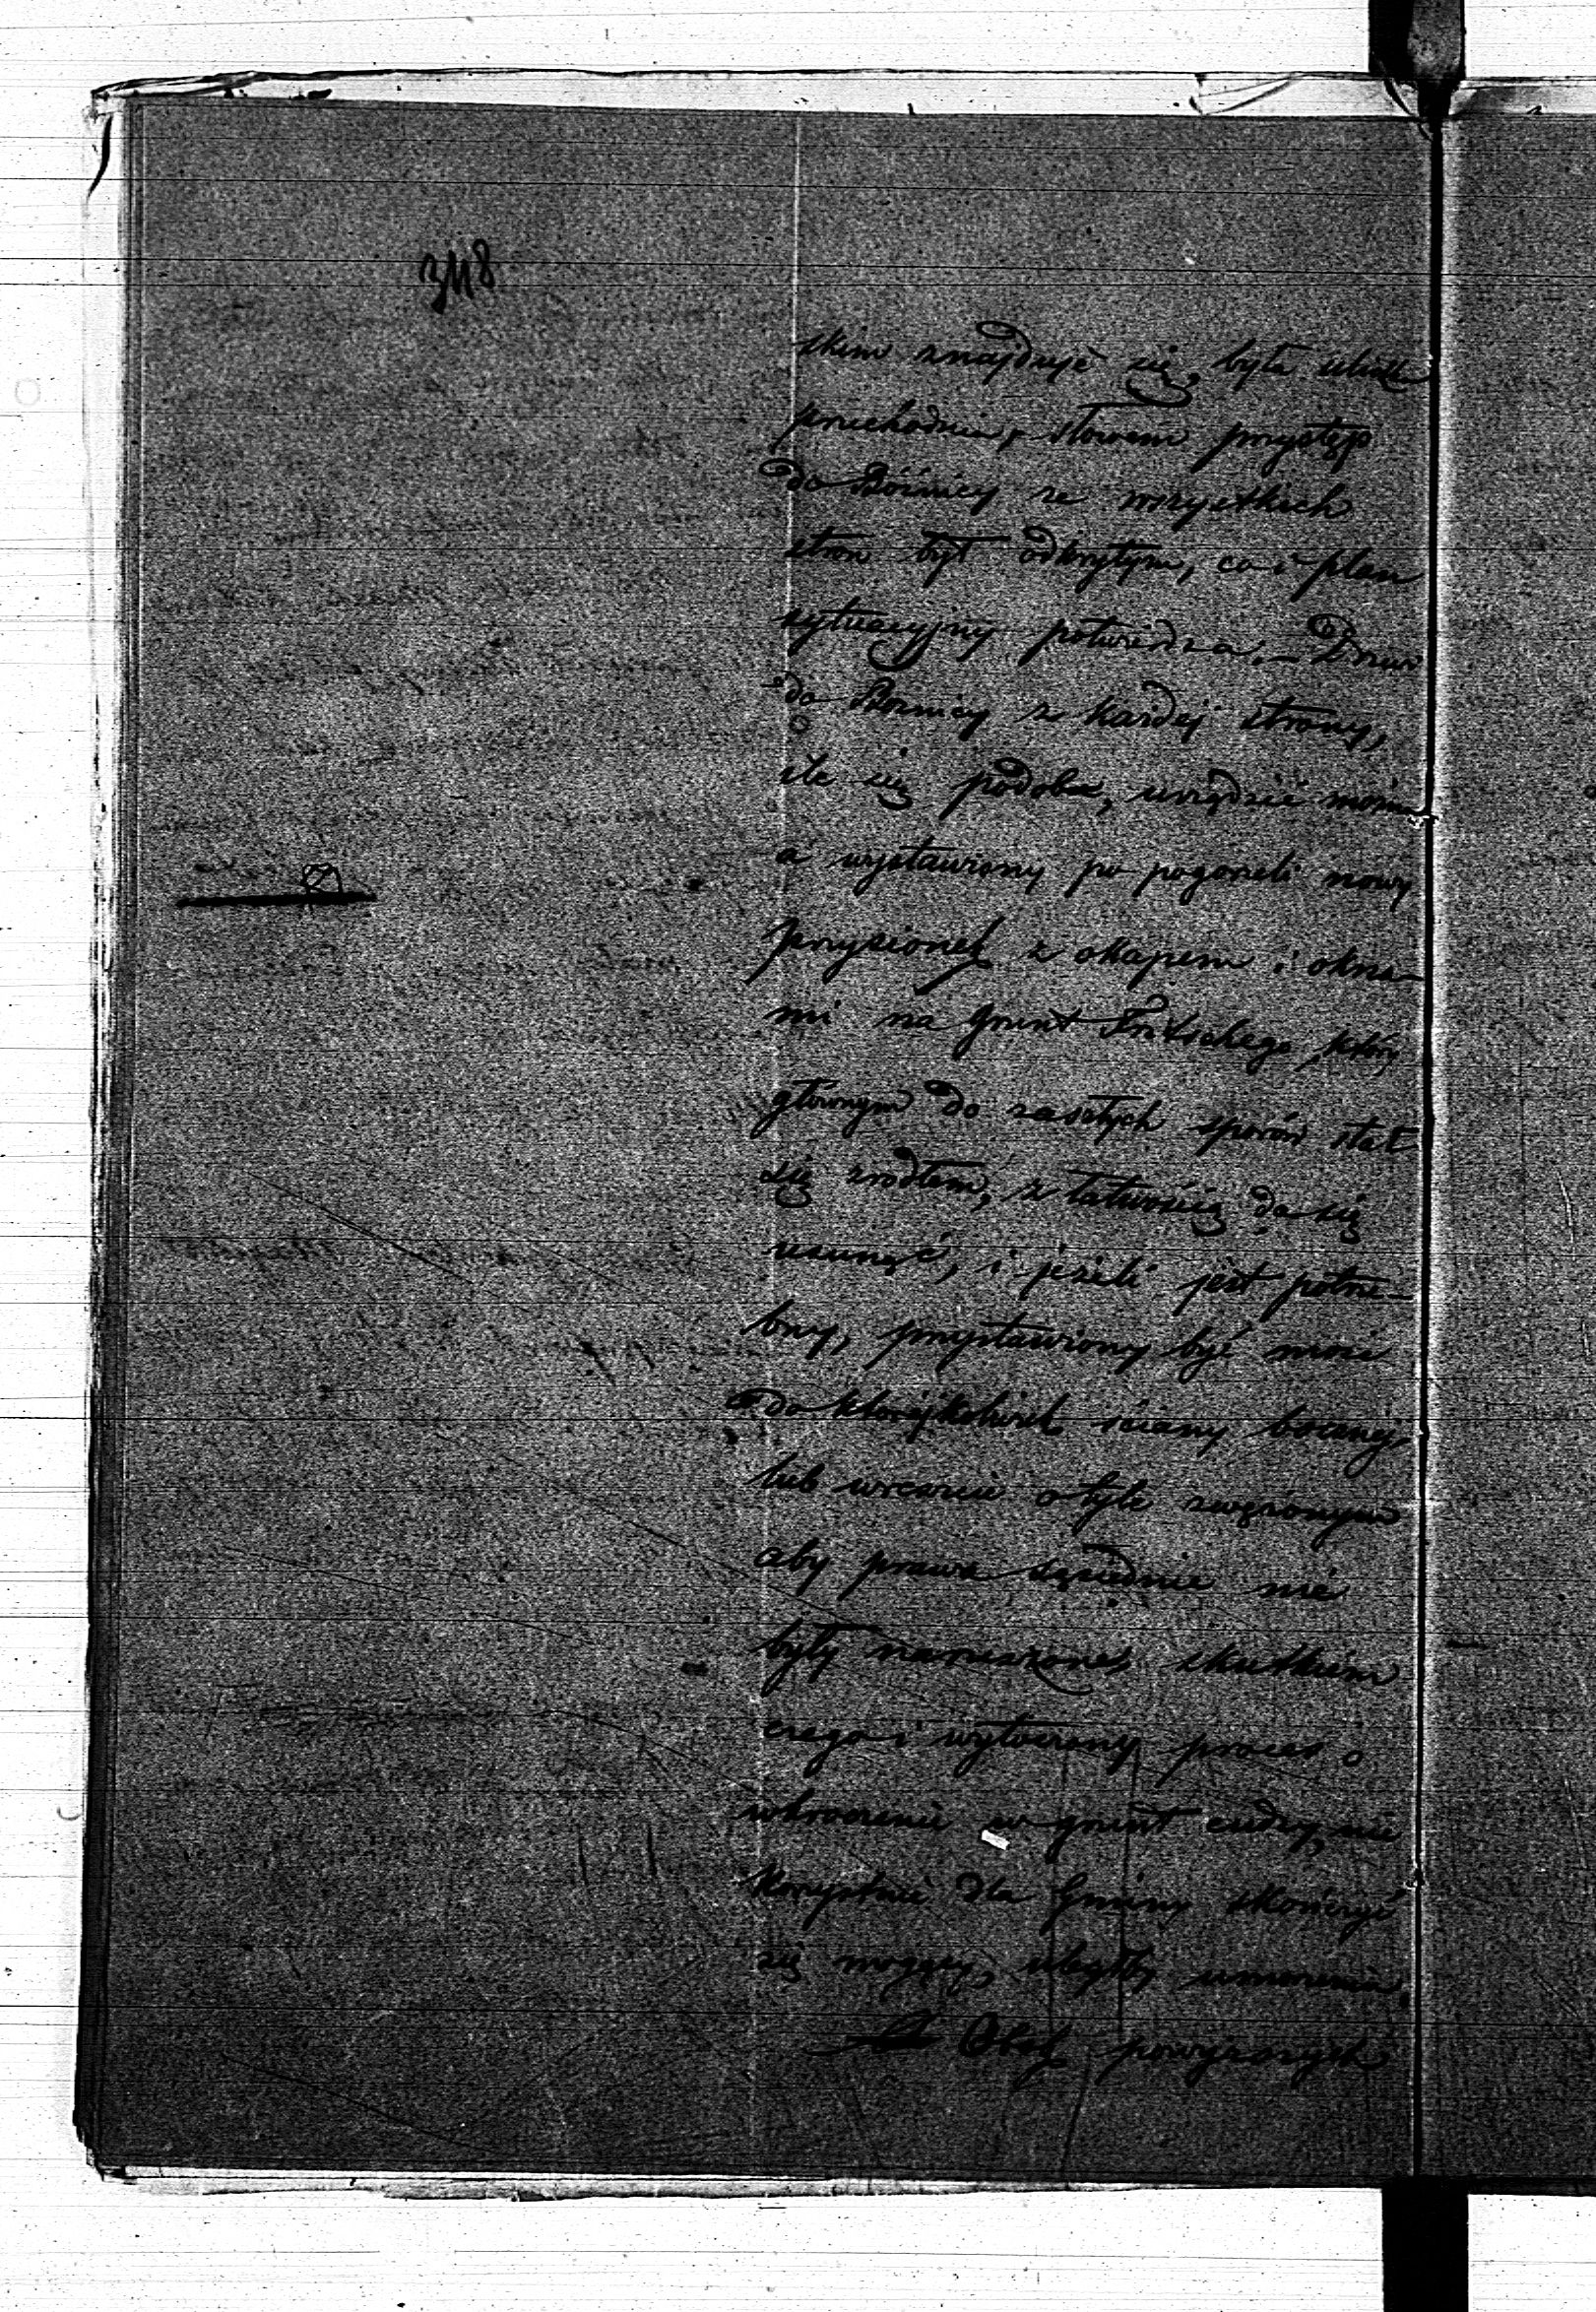 348
skim znajduje się, była ulica
przechodnia, słowem przystęp
do Bóżnicy ze wszystkich
stron był odkrytym, co i plan
sytuacyjny potwierdza. – Drzwi
do Bóżnicy z każdej strony,
ile się podoba, urządzić można
a wystawiony po pogorzeli nowy
przysionek z okapem i okna-
mi na grunt Fritschego, który
głównym do zaszłych sporów stał
się zrodłem, z łatwością da się
usunąć, i jeżeli jest potrze-
bny, przystawiony być może
do którejkolwiek ściany bocznej
lub wreszcie o tyle zwężonym
aby prawa sąsiednie nie
były naruszone, skutkiem
czego i wytoczony proces o
wkroczenie w grunt cudzy, nie
korzystnie dla Gminy skończyć
się mogący, uległby umorzeniu.
Obok powyższych